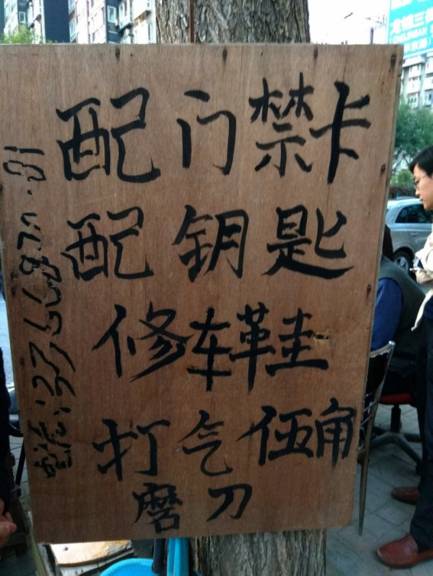 配门禁卡
配钥匙
修车鞋
打气伍角
磨刀